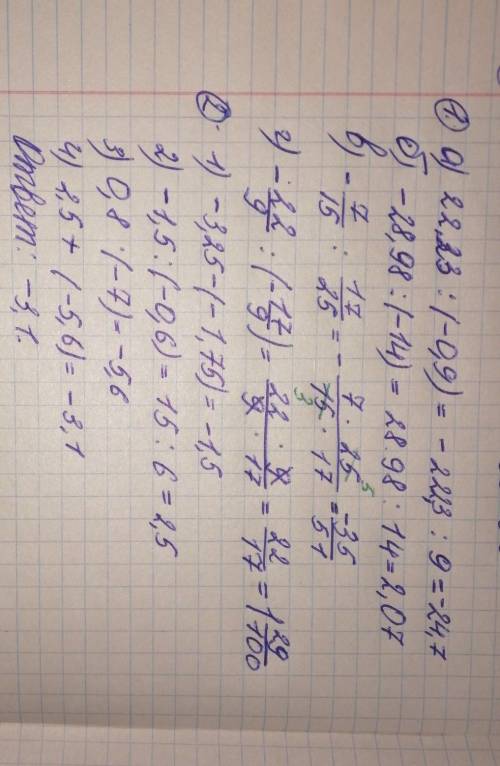 1. а) 22,23 : (-0,9) = -222,3 : 9 = -24,7
б) -28,98 : (-14) = 28.98 : 14 = 2,07
в) -7/15 : 17/25 = - 7 · 25 5/15 3 · 17 = -35/51
г) -22/9 : (-17/9) = 22 · 9/9 · 17 = 22/17 = 1 29/100
2. 1) -3,25 - (-1,75) = -1,5
2) -1,5 : (-0,6) = 15 : 6 = 2,5
3) 0,8 · (-7) = -5,6
4) 2,5 + (-5,6) = -3,1
Ответ: -3,1.